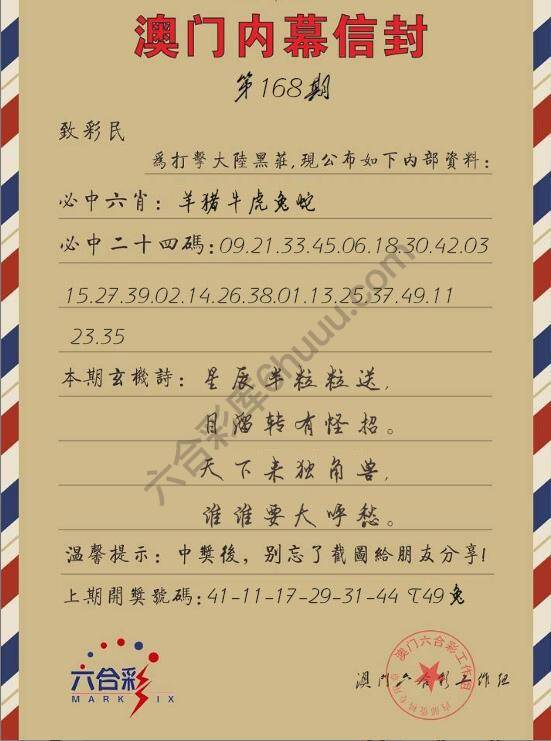 澳门内幕信封
第168期
致彩民
為打擊大陸黑莊,現公布如下内部資料:
必中六肖:羊猪牛虎兔蛇
必中二十四碼:09.21.33.45.06.18.30.42.03
15.27.39.02.14.26.38.01.13.25.37.49.11
23.35
本期玄機詩:星辰半粒粒送,
目溜转有怪招。
天下来独角兽,
谁谁要大呼愁。
温馨提示:中獎後,别忘了截圖給朋友分享!
上期開獎號碼:41-11-17-29-31-44 T49兔
六合彩
MARK SIX
澳门六合彩工作组
澳门六合彩工作组
六合彩库6huuu.com